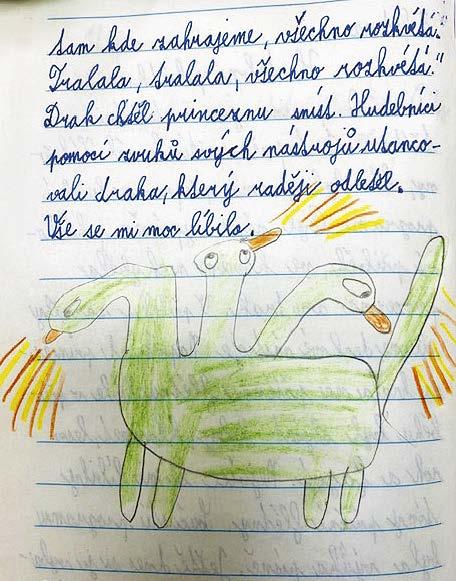 tam kde zahrajeme, všechno rozkvétá.
Tralala, tralala, všechno rozkvétá."
Drak chtěl princeznu sníst. Hudebníci
pomocí zvuků svých nástrojů utanco-
vali draka, který raději odletěl.
Vše se mi moc líbilo.